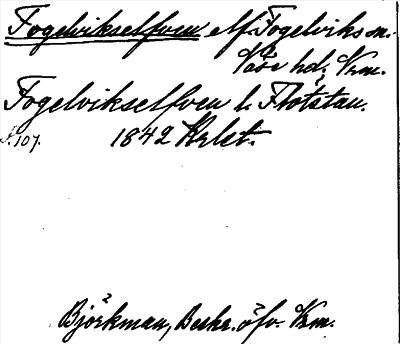 Fogelvikselfven elf. Fogelviks m.
Väse hd, Vrm.
Fogelvikselfven l. Flötstan.
S. 107. 1842 Krlst.
Björkman, Beskr. öfv. Vrm.